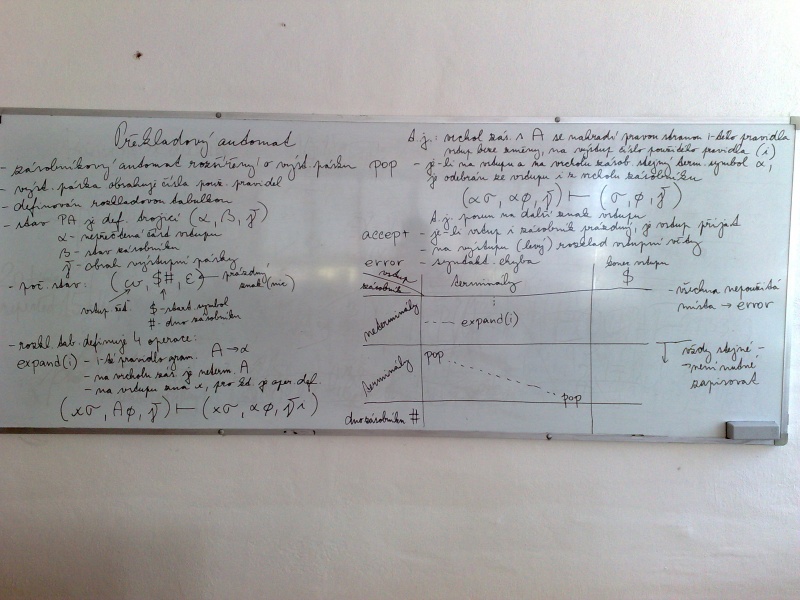 Překladový automat
- zásobníkový automat rozšířený o výst. pásku
- výst. páska obsahuje čísla použ. pravidel
- definován rozkladovou tabulkou
- stav PA je def. trojicí (α, β, γ)
α - nepřečtená část vstupu
β - stav zásobníku
γ - obsah výstupní pásky
- poč. stav: (ω, $#, ε) prázdný znak (nic)
vstup. řet. $ - start. symbol
# - dno zásobníku
- rozkl. tab. definuje 4 operace:
expand(i) - i-té pravidlo gram. A → α
- na vrcholu zás. je neterm. A
- na vstupu znak x, pro kt. je oper. def.
(xσ, Aφ, γ) ⊢ (xσ, αφ, γi)
t.j.: vrchol zás. s A se nahradí pravou stranou i-tého pravidla
vstup beze změny, na výstup číslo použitého pravidla (i)
pop - je-li na vstupu a na vrcholu zásob. stejný term. symbol α,
je odebrán ze vstupu i z vrcholu zásobníku
(ασ, αφ, γ) ⊢ (σ, φ, γ)
t.j. posun na další znak vstupu
accept - je-li vstup i zásobník prázdný, je vstup přijat
- na výstupu (levý) rozklad vstupní věty
error - syntakt. chyba
vstup
zásobník
terminály
konec vstupu
$
neterminály
expand(i)
terminály
pop
pop
dno zásobníku #
- všechna nepoužitá
místa → error
vždy stejné -
→ není nutné
zapisovat